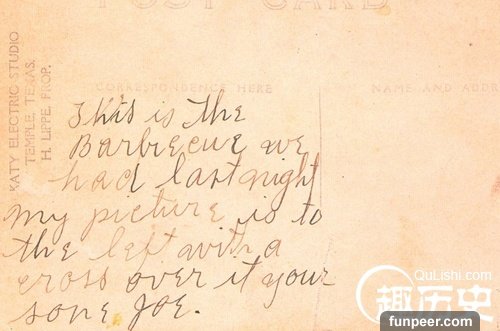 POST CARD
CORRESPONDENCE HERE
NAME AND ADDR
KATY ELECTRIC STUDIO
TEMPLE, TEXAS.
H. LIPPE, PROP.
This is the
Barbecue we
had last night
My picture is to
the left with a
cross over it your
sone Joe.
QuLishi.com
趣历史
funpeer.com